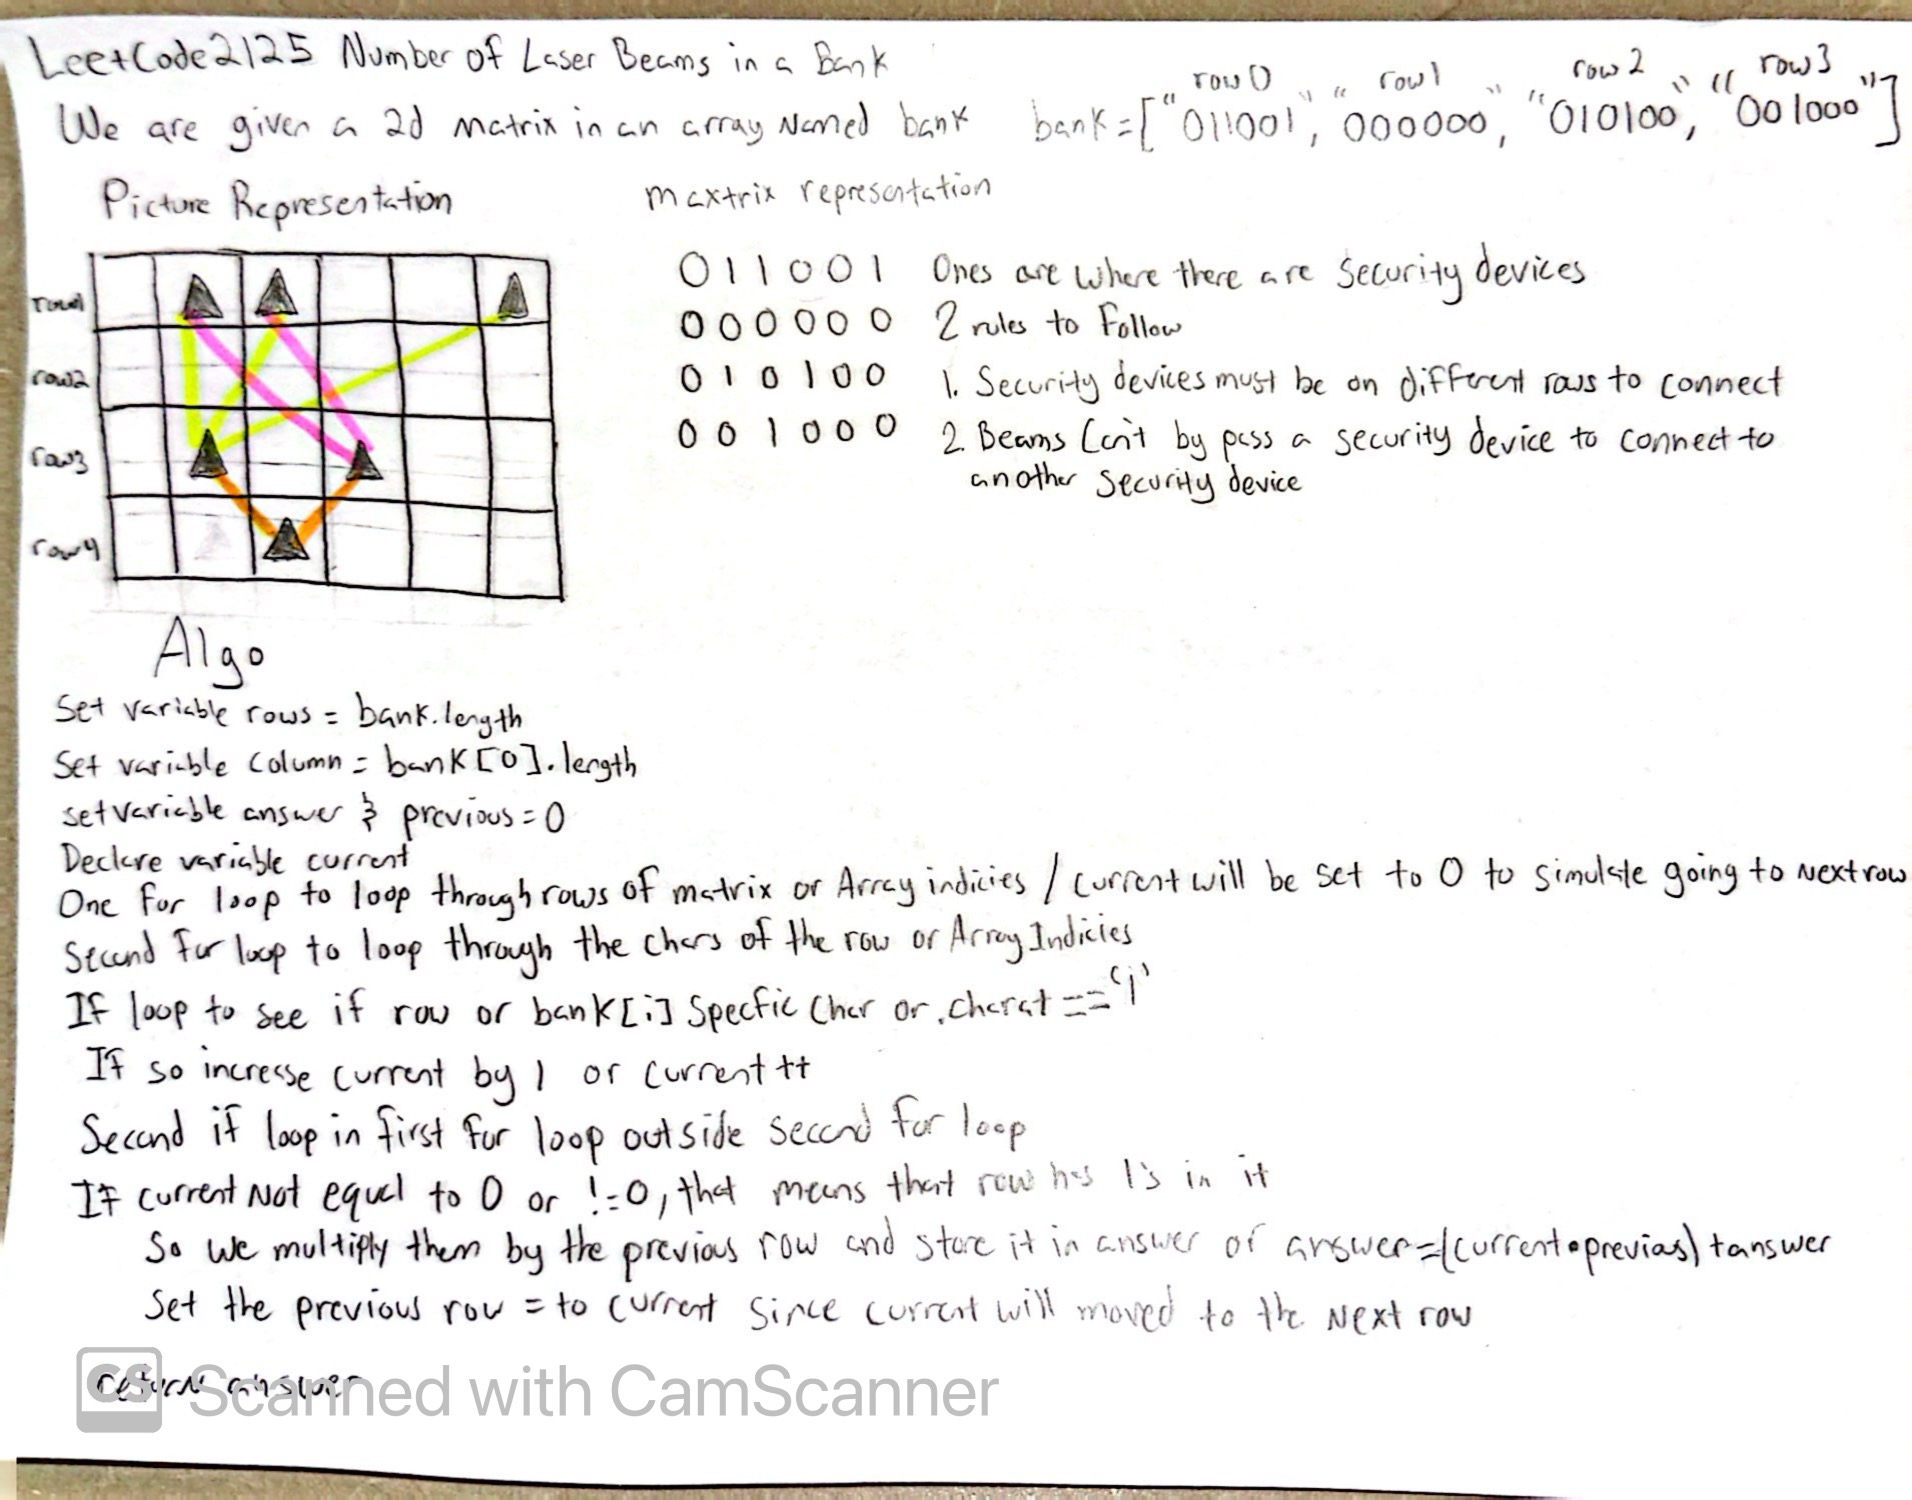 LeetCode 2125 Number of Laser Beams in a Bank
We are given a 2d matrix in an array Named bank
row 0 row 1 row 2 row 3
bank = ["011001", "000000", "010100", "001000"]
Picture Representation
maxtrix representation
row1
row2
row3
row4
011001 Ones are where there are Security devices
000000 2 rules to Follow
010100 1. Security devices must be on different rows to connect
001000 2. Beams Can't by pass a security device to connect to
another security device
Algo
Set variable rows = bank.length
Set variable column = bank[0].length
set variable answer & previous = 0
Declare variable current
One for loop to loop through rows of matrix or Array indicies / current will be set to 0 to simulate going to Next row
Second for loop to loop through the chars of the row or Array Indicies
If loop to see if row or bank[i] Specfic Char or .charat == '1'
If so increase current by 1 or current ++
Second if loop in first for loop outside second for loop
If current Not equal to 0 or != 0, that means that row has 1's in it
So we multiply them by the previous row and store it in answer or answer=(current•previous)+answer
Set the previous row = to current Since current will moved to the Next row
return answer
CS Scanned with CamScanner